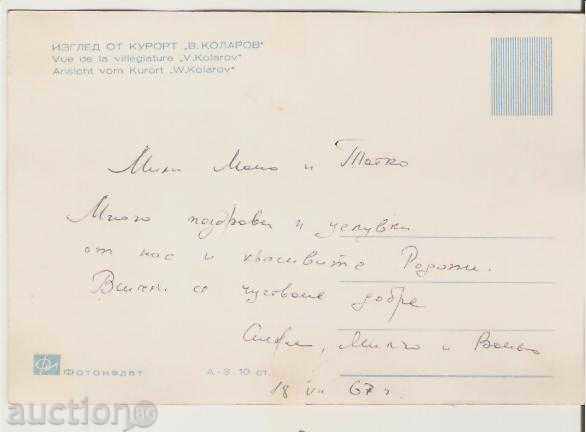 ИЗГЛЕД ОТ КУРОРТ „В. КОЛАРОВ“
Vue de la villégiature „V. Kolarov“
Ansicht vom Kurort „W. Kolarov“
Мили Мамо и Татко
Много поздрави и целувки
от нас и красивите Родопи.
Всички се чувстваме добре
Милчо и
Фотоиздат
А-3. 10 ст.
18 VII 67 г.
auction BG